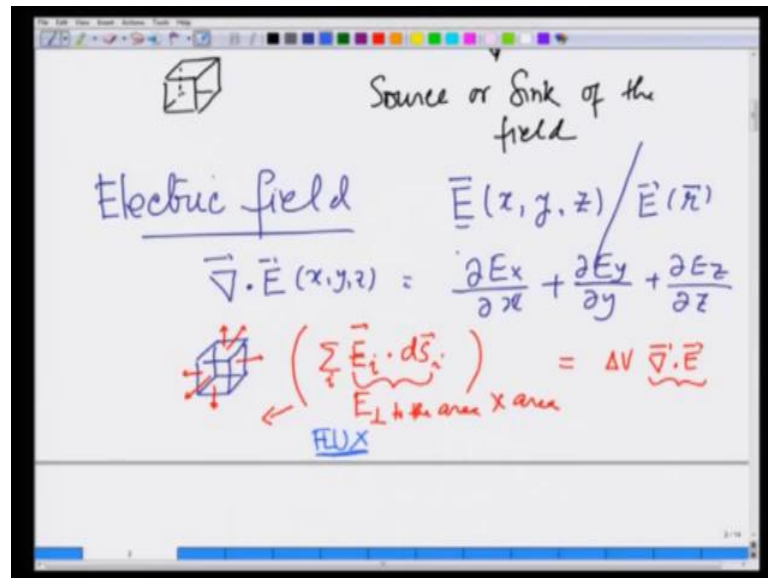 File Edit View Insert Actions Tools Help
Source or Sink of the
field
Electric field E⃗ (x, y, z) / E⃗ (r⃗)
∇⃗ · E⃗ (x,y,z) = ∂Ex/∂x + ∂Ey/∂y + ∂Ez/∂z
( Σᵢ E⃗ᵢ · ds⃗ᵢ ) = ΔV ∇⃗ · E⃗
E⊥ to the area × area
FLUX
2